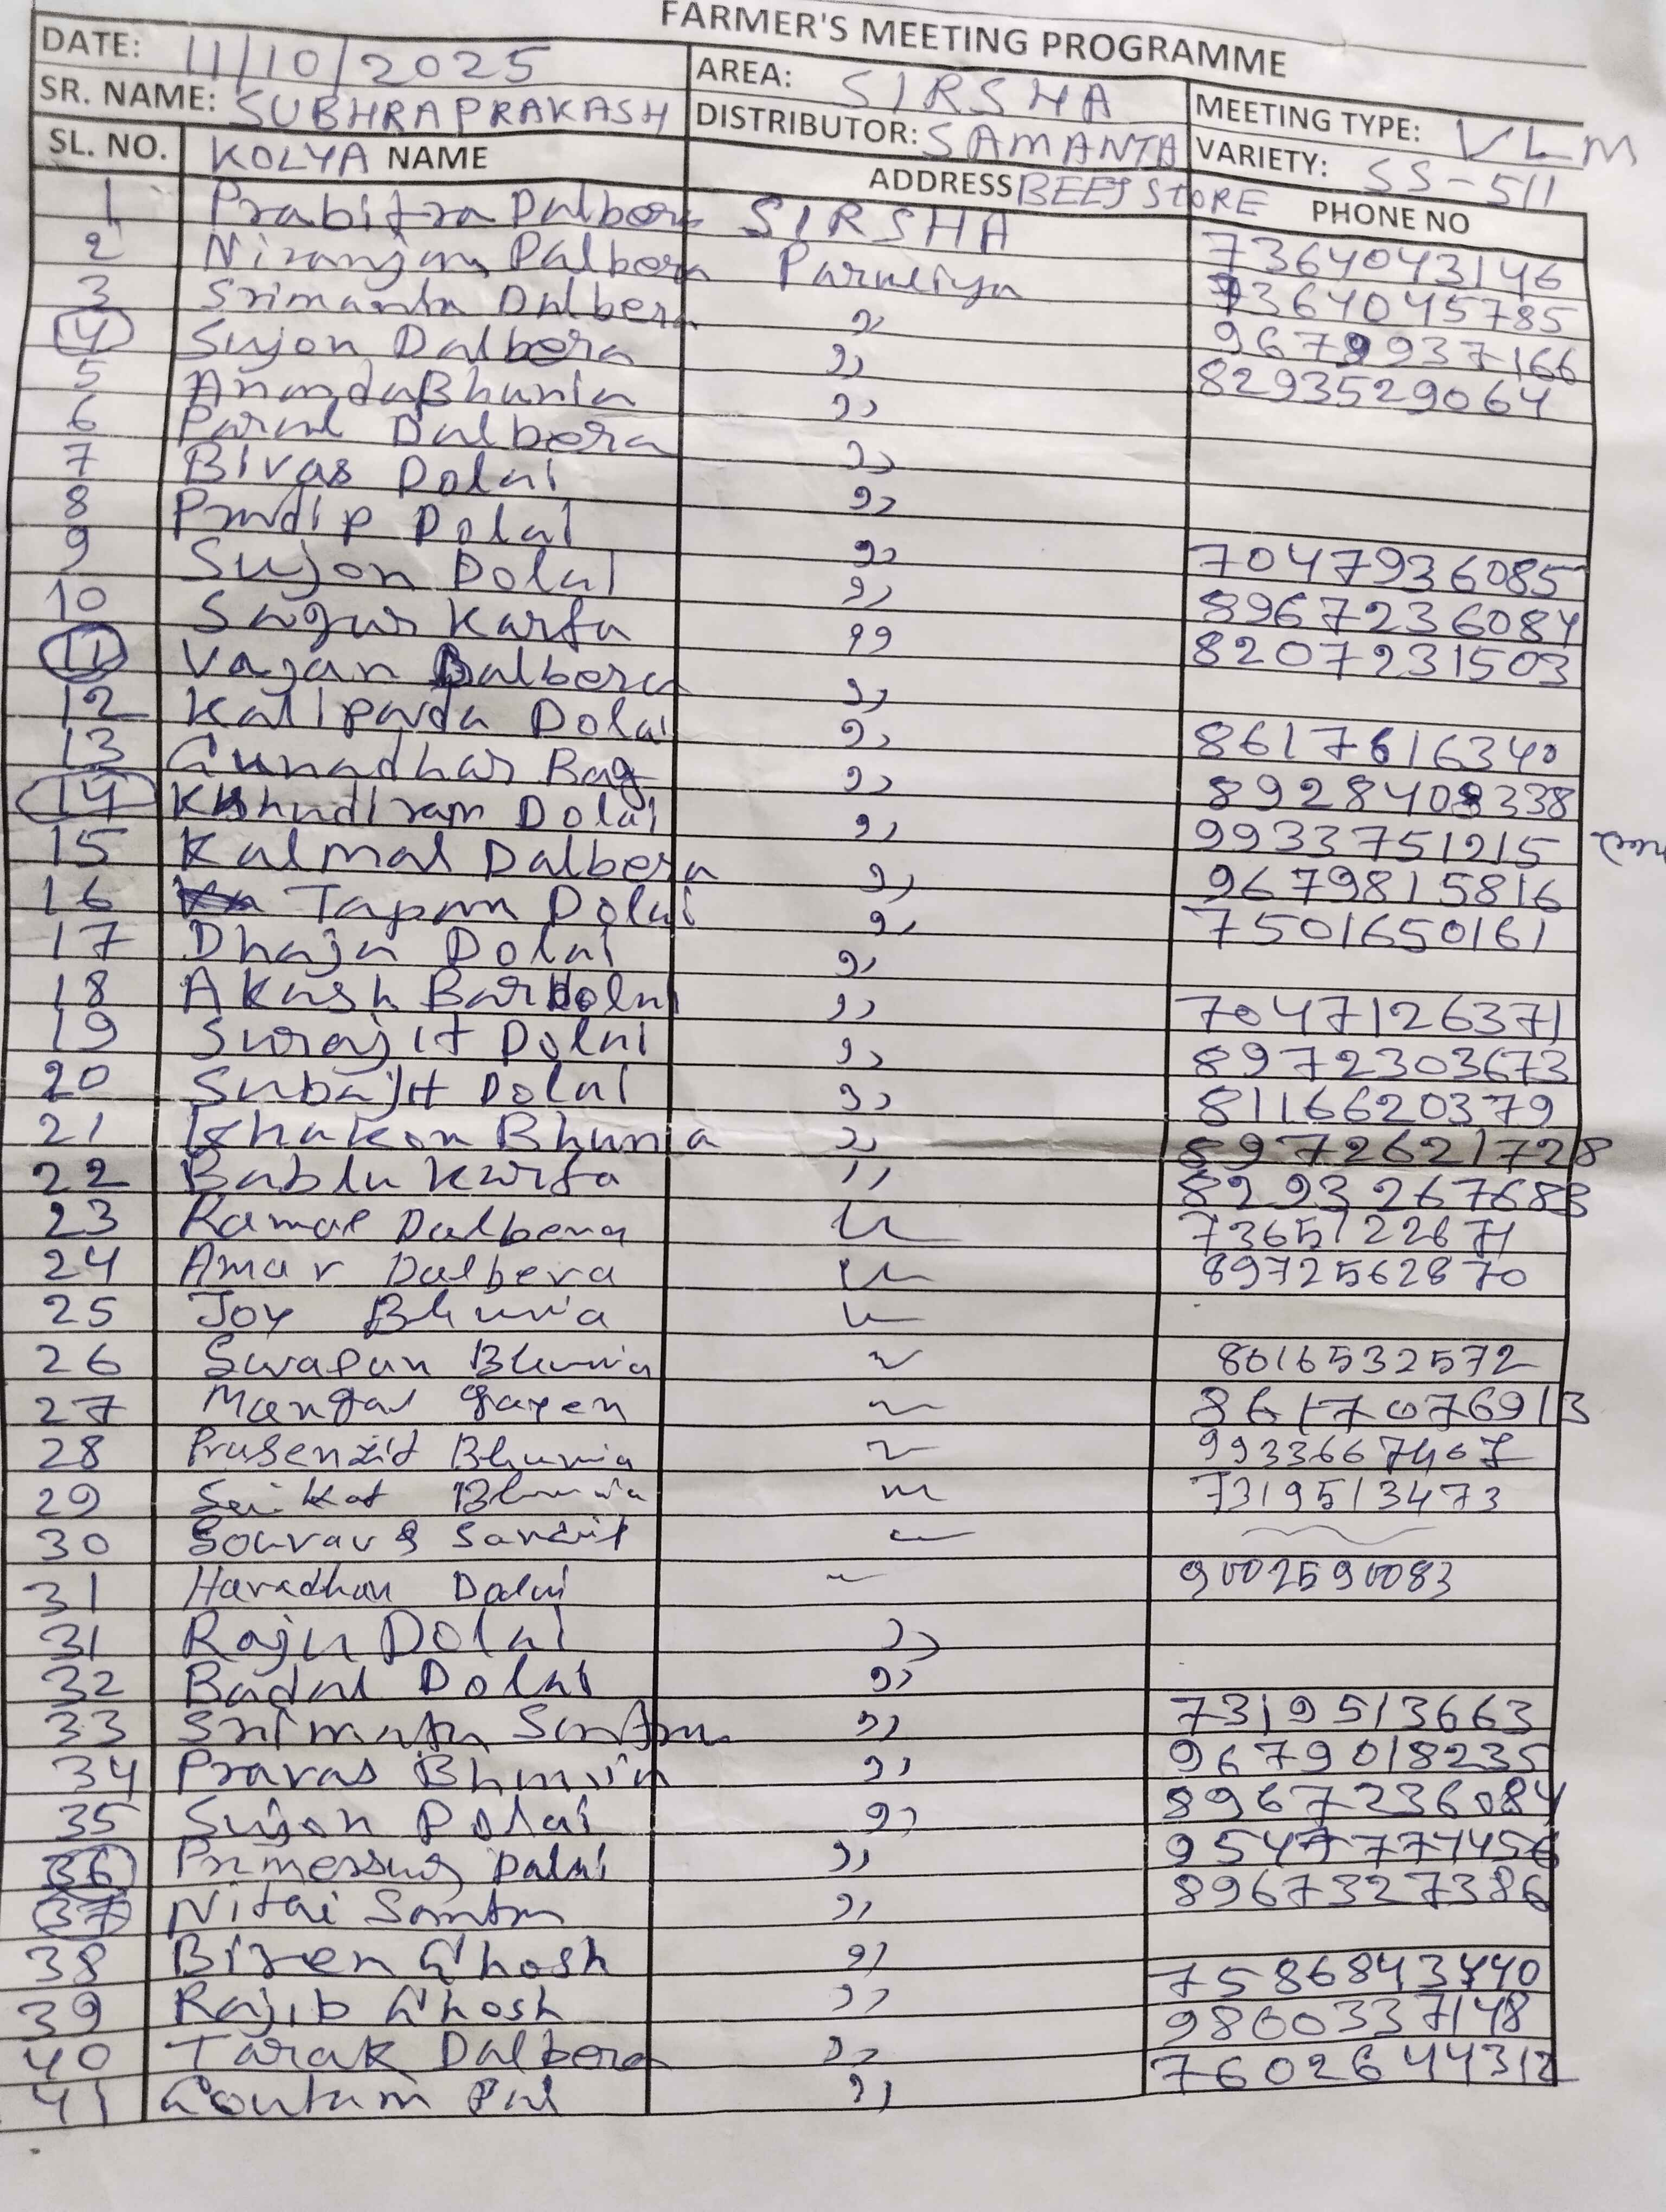 FARMER'S MEETING PROGRAMME
DATE: 11/10/2025 AREA: SIRSHA MEETING TYPE: VLM
SR. NAME: SUBHRAPRAKASH KOLYA DISTRIBUTOR: SAMANTA BEEJ STORE VARIETY: SS-511
SL. NO. NAME ADDRESS PHONE NO
1 Prabitra Dalbera SIRSHA 7364043146
2 Niranjan Dalbera Paruliya 7364045785
3 Srimanta Dalbera ,, 9679937166
4 Sujon Dalbera ,, 8293529064
5 Ananda Bhunia ,,
6 Parul Dalbera ,,
7 Bivas Dolai ,,
8 Pradip Dolai ,, 7047936085
9 Sujon Dolai ,, 8967236084
10 Sagur Karfa ,, 8207231503
11 Vagan Dalbera ,,
12 Kalipada Dolai ,, 8617616340
13 Gunadhar Bag ,, 8928408338
14 Khudiram Dolai ,, 9933751215
15 Kalmal Dalbera ,, 9679815816
16 Tapan Dolai ,, 7501650161
17 Dhaja Dolai ,,
18 Akash Bardolai ,, 7047126371
19 Surajit Dolai ,, 8972303673
20 Subajit Dolai ,, 8116620379
21 Khakon Bhunia ,, 8972621728
22 Bablu Karfa ,, 8293267683
23 Kamal Dalbera ,, 7365122671
24 Amar Dalbera ,, 8972562870
25 Joy Bhunia ,,
26 Swapan Bhunia ,, 8016532572
27 Mangal Gayen ,, 8617076913
28 Prasenzit Bhunia ,, 9933667407
29 Saikat Bhunia ,, 7319513473
30 Sourav ,,
31 Haradhan Dalui ,, 9002590083
31 Raju Dolai ,,
32 Badal Dolai ,,
33 Srimanta Santra ,, 7319513663
34 Pravas Bhunia ,, 9679018235
35 Sujon Dolai ,, 8967236084
36 Dalai ,, 9547777456
37 Nitai Santra ,, 8967327386
38 Biren Ghosh ,,
39 Rajib Ghosh ,, 9800337148
40 Tarak Dalbera ,, 7602644312
41 Goutam Pal ,,